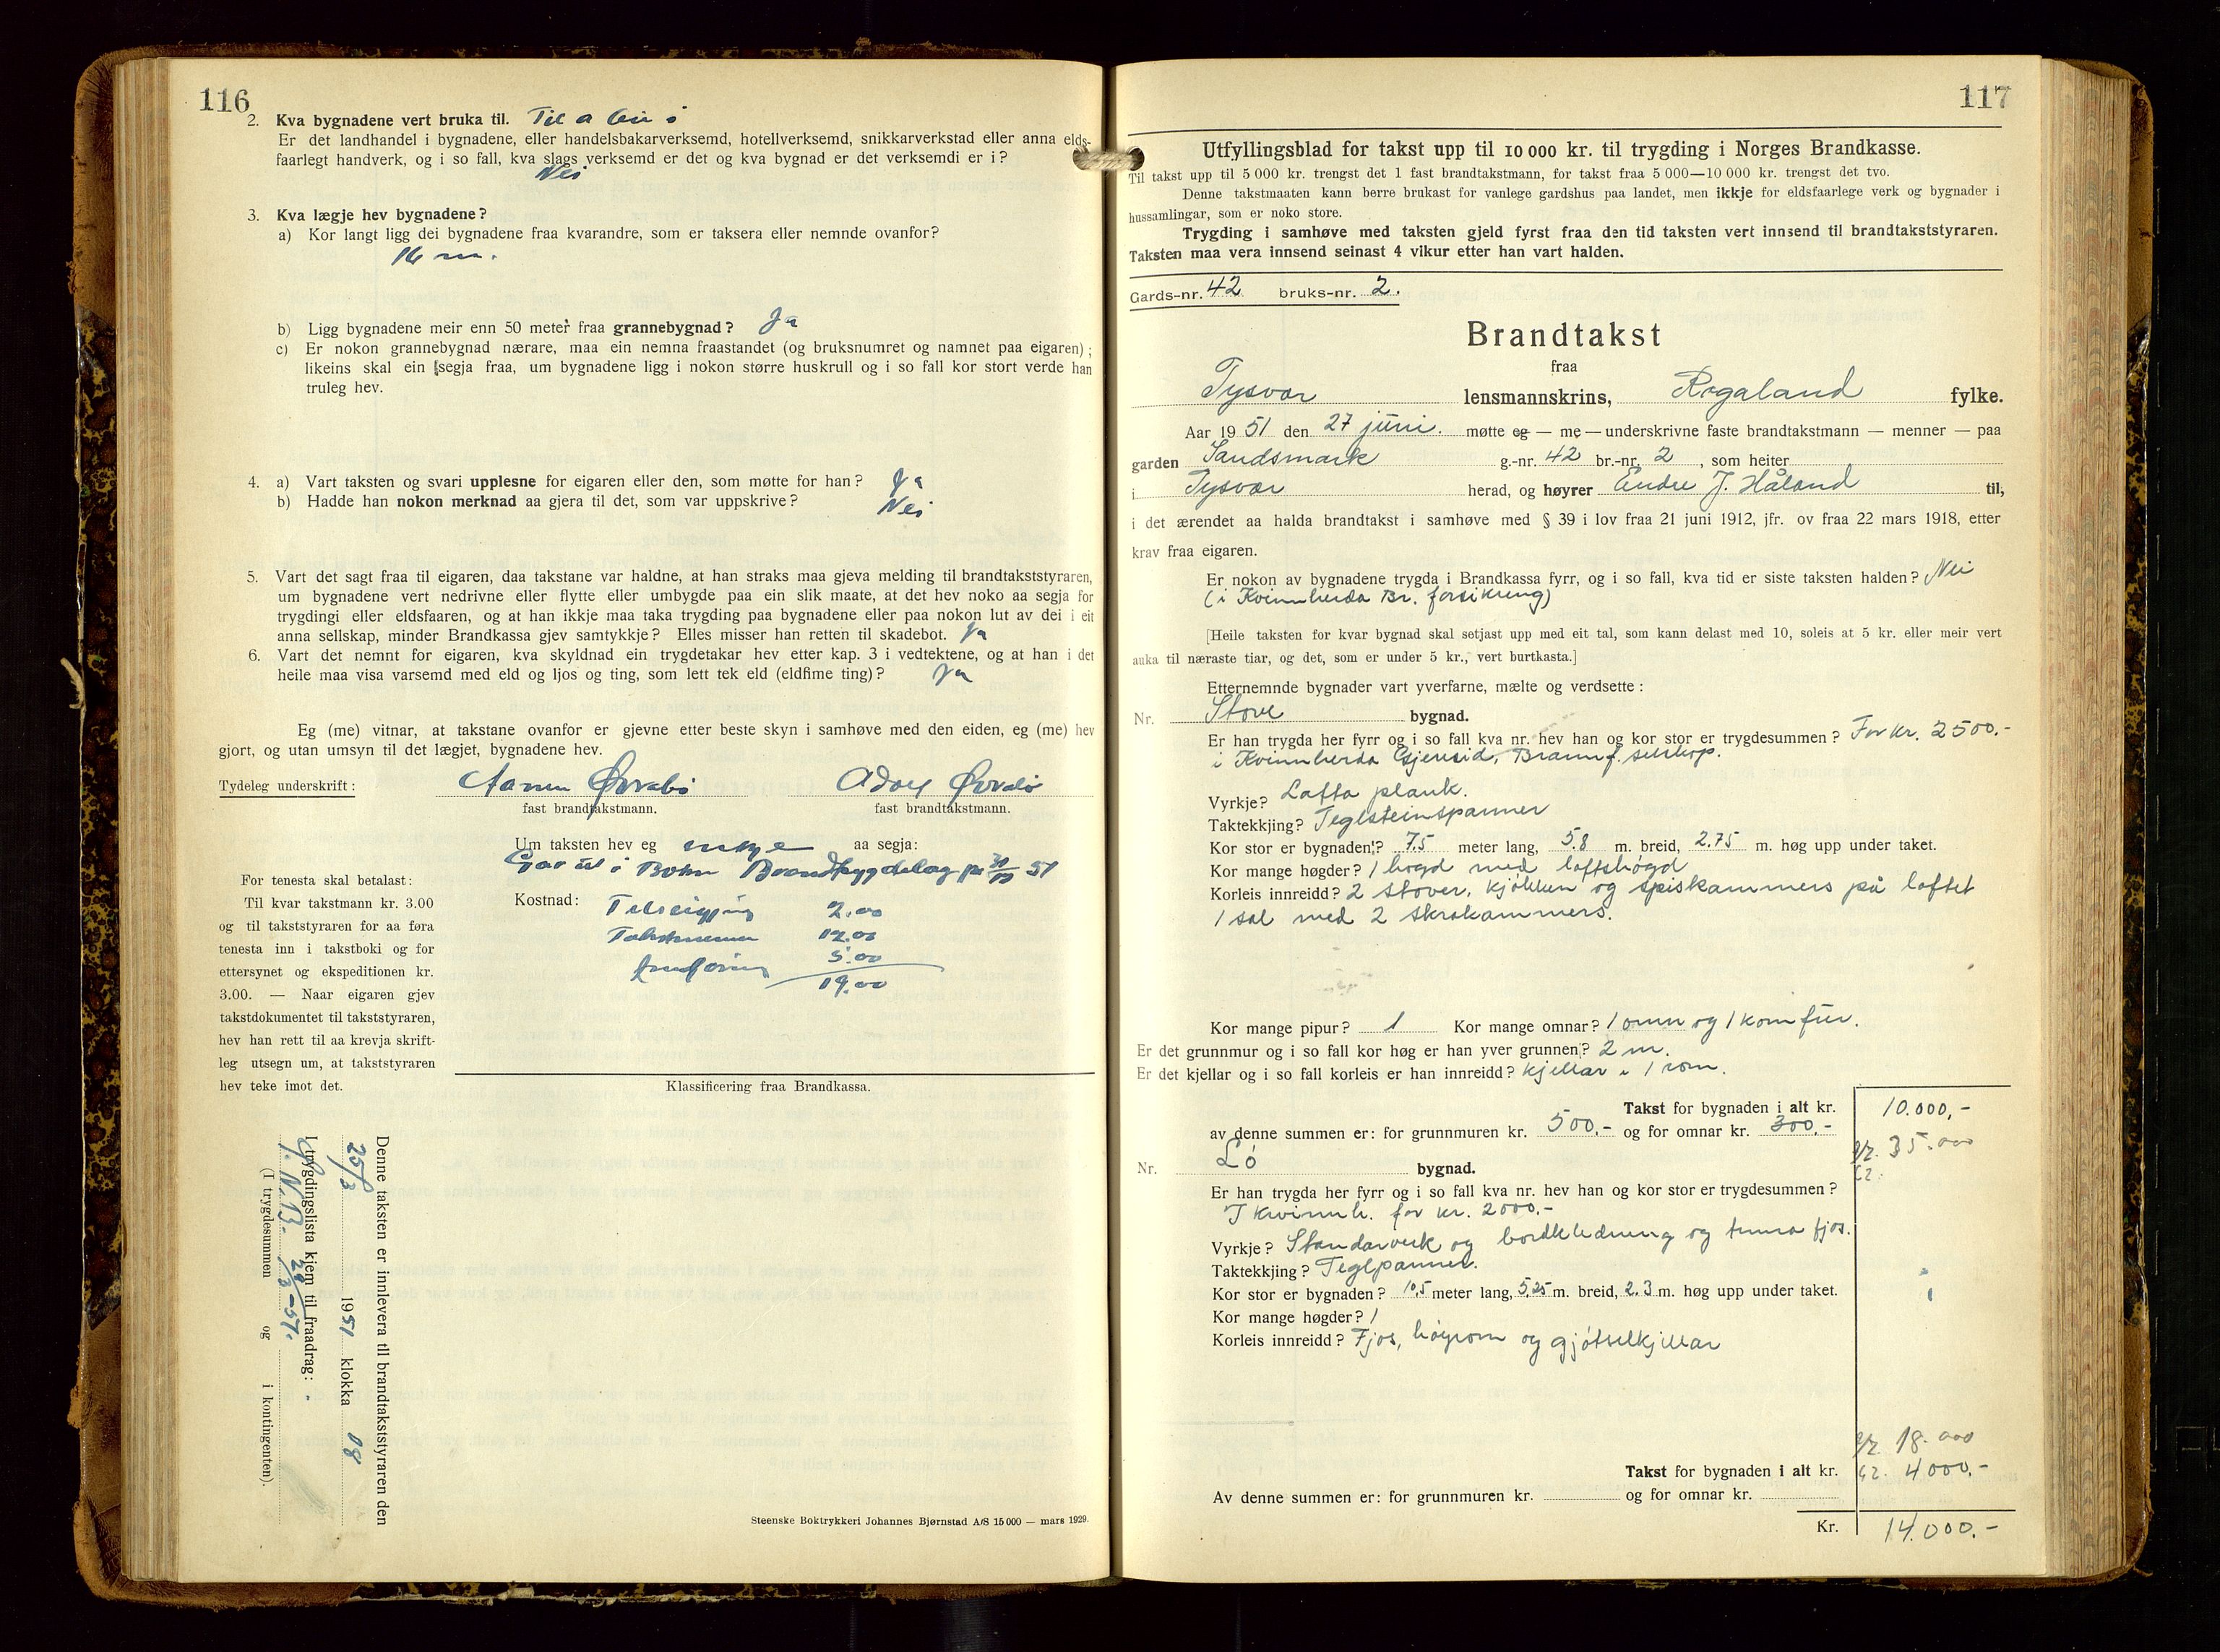 116
2. Kva bygnadene vert bruka til. Til a bu i
Er det landhandel i bygnadene, eller handelsbakarverksemd, hotellverksemd, snikkarverkstad eller anna elds-
faarlegt handverk, og i so fall, kva slags verksemd er det og kva bygnad er det verksemdi er i?
Nei
3. Kva lægje hev bygnadene?
a) Kor langt ligg dei bygnadene fraa kvarandre, som er taksera eller nemnde ovanfor?
16 m.
b) Ligg bygnadene meir enn 50 meter fraa grannebygnad? Ja
c) Er nokon grannebygnad nærare, maa ein nemna fraastandet (og bruksnumret og namnet paa eigaren);
likeins skal ein segja fraa, um bygnadene ligg i nokon større huskrull og i so fall kor stort verde han
truleg hev.
4. a) Vart taksten og svari upplesne for eigaren eller den, som møtte for han? Ja
b) Hadde han nokon merknad aa gjera til det, som var uppskrive? Nei
5. Vart det sagt fraa til eigaren, daa takstane var haldne, at han straks maa gjeva melding til brandtakststyraren,
um bygnadene vert nedrivne eller flytte eller umbygde paa ein slik maate, at det hev noko aa segja for
trygdingi eller eldsfaaren, og at han ikkje maa taka trygding paa bygnadene eller paa nokon lut av dei i eit
anna sellskap, minder Brandkassa gjev samtykkje? Elles misser han retten til skadebot. Ja
6. Vart det nemnt for eigaren, kva skyldnad ein trygdetakar hev etter kap. 3 i vedtektene, og at han i det
heile maa visa varsemd med eld og ljos og ting, som lett tek eld (eldfime ting)? Ja
Eg (me) vitnar, at takstane ovanfor er gjevne etter beste skyn i samhøve med den eiden, eg (me) hev
gjort, og utan umsyn til det lægjet, bygnadene hev.
Tydeleg underskrift: Øvrabø Adolf Øvrabø
fast brandtakstmann. fast brandtakstmann.
Um taksten hev eg inkje aa segja:
Gar ut i Bokn Brandtrygdelag på 51
Kostnad: Tilseigjing 2.00
Takstmenn 12.00
Innføring 5.00
19.00
For tenesta skal betalast:
Til kvar takstmann kr. 3.00
og til takststyraren for aa føra
tenesta inn i takstboki og for
ettersynet og ekspeditionen kr.
3.00. — Naar eigaren gjev
takstdokumentet til takststyraren,
hev han rett til aa krevja skrift-
leg utsegn um, at takststyraren
hev teke imot det.
Klassificering fraa Brandkassa.
Denne taksten er innlevera til brandtakststyraren den
25/3 1951 klokka 08
I trygdingslista kjem til fraadrag:
J. N.B. 29/3-57.
(I trygdesummen og i kontingenten).
Steenske Boktrykkeri Johannes Bjørnstad A/S 15 000 — mars 1929.
117
Utfyllingsblad for takst upp til 10 000 kr. til trygding i Norges Brandkasse.
Til takst upp til 5 000 kr. trengst det 1 fast brandtakstmann, for takst fraa 5 000—10 000 kr. trengst det tvo.
Denne takstmaaten kann berre brukast for vanlege gardshus paa landet, men ikkje for eldsfaarlege verk og bygnader i
hussamlingar, som er noko store.
Trygding i samhøve med taksten gjeld fyrst fraa den tid taksten vert innsend til brandtakststyraren.
Taksten maa vera innsend seinast 4 vikur etter han vart halden.
Gards-nr. 42 bruks-nr. 2.
Brandtakst
fraa
Tysvær lensmannskrins, Rogaland fylke.
Aar 1951 den 27 juni. møtte eg — me — underskrivne faste brandtakstmann — menner — paa
garden Sandsmark g.-nr. 42 br.-nr. 2, som heiter
i Tysvær herad, og høyrer Endre J. Håland til,
i det ærendet aa halda brandtakst i samhøve med § 39 i lov fraa 21 juni 1912, jfr. ov fraa 22 mars 1918, etter
krav fraa eigaren.
Er nokon av bygnadene trygda i Brandkassa fyrr, og i so fall, kva tid er siste taksten halden? Nei
(i Kvinnherda Br. forsikreng)
[Heile taksten for kvar bygnad skal setjast upp med eit tal, som kann delast med 10, soleis at 5 kr. eller meir vert
auka til næraste tiar, og det, som er under 5 kr., vert burtkasta.]
Etternemnde bygnader vart yverfarne, mælte og verdsette:
Nr. Stove bygnad.
Er han trygda her fyrr og i so fall kva nr. hev han og kor stor er trygdesummen? For kr. 2500.-
i Kvinnherda Gjensid. Brannf. selskap.
Vyrkje? Lafta plank.
Taktekkjing? Teglsteinspanner
Kor stor er bygnaden? 7.5 meter lang, 5.8 m. breid, 2.75 m. høg upp under taket.
Kor mange høgder? 1 høgd med loftshøgd
Korleis innreidd? 2 stover, kjøkken og spiskammers på loftet
1 sal med 2 skrakammers.
Kor mange pipur? 1 Kor mange omnar? 1 omn og 1 komfur.
Er det grunnmur og i so fall kor høg er han yver grunnen? 2 m.
Er det kjellar og i so fall korleis er han innreidd? Kjellar i 1 rom.
Takst for bygnaden i alt kr. 10.000,-
av denne summen er: for grunnmuren kr. 500.- og for omnar kr. 300.-
35.000
Nr. Lø bygnad.
Er han trygda her fyrr og i so fall kva nr. hev han og kor stor er trygdesummen?
I kvinnh. for kr. 2000.-
Vyrkje? Standarverk og bordkledning og tmra fjos.
Taktekkjing? Teglpanner.
Kor stor er bygnaden? 10,5 meter lang, 5,25 m. breid, 2.3 m. høg upp under taket.
Kor mange høgder? 1
Korleis innreidd? Fjos, høyrom og gjøtselkjellar
18.000
Takst for bygnaden i alt kr. 4000.-
Av denne summen er: for grunnmuren kr. og for omnar kr.
Kr. 14.000.-